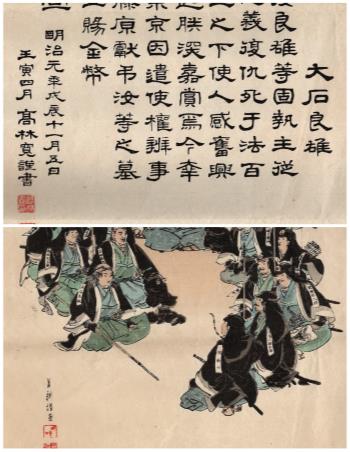 大石良雄
良雄等固執主從
義復仇死于法百
之下使人感奮興
朕深嘉賞焉今幸
東京因遣使權辨事
藤原獻弔汝等之墓
且賜金幣
明治元年戊辰十一月五日
壬寅四月 髙林寛謹書